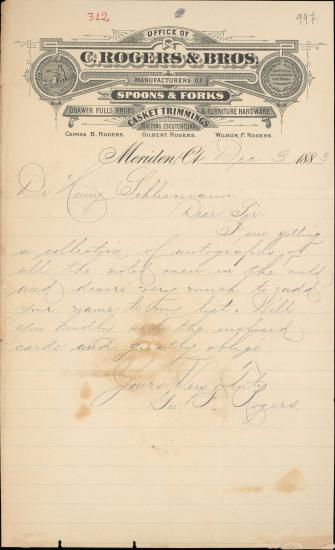 312
997
OFFICE OF
C. ROGERS & BROS.
MANUFACTURERS OF
SPOONS & FORKS
DRAWER PULLS, KNOBS
CASKET TRIMMINGS
& FURNITURE HARDWARE
COFFIN ESCUTCHEONS
CEPHAS B. ROGERS.
GILBERT ROGERS.
WILBUR F. ROGERS.
Meriden, Ct. Dec 3 1883
Dr Henry Schliemann
Dear Sir
I am getting
a collection of autographs of
all the noted men in the world
and desire very much to add
your name to my list. Will
you kindly sign the enclosed
cards and greatly oblige
Yours Very Truly
W. F. Rogers.